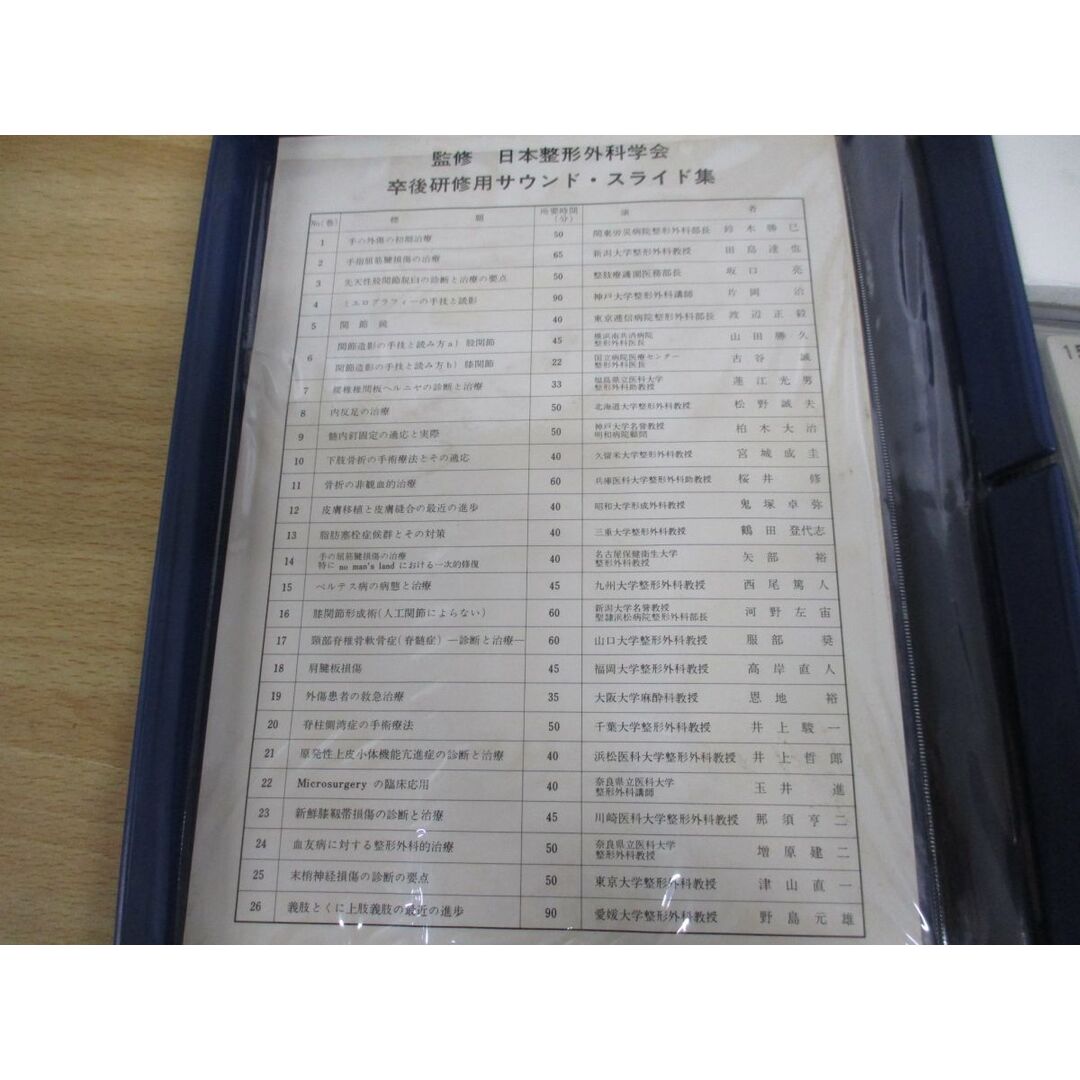 監修 日本整形外科学会
卒後研修用サウンド・スライド集
No(巻) 標題 所要時間(分) 演者
1 手の外傷の初期治療 50 関東労災病院整形外科部長 鈴木勝巳
2 手指屈筋腱損傷の治療 65 新潟大学整形外科教授 田島達也
3 先天性股関節脱臼の診断と治療の要点 50 整肢療護園医務部長 坂口亮
4 ミエログラフィーの手技と読影 90 神戸大学整形外科講師 片岡治
5 関節鏡 40 東京逓信病院整形外科部長 渡辺正毅
6 関節造影の手技と読み方a) 股関節 45 横浜南共済病院整形外科医長 山田勝久
関節造影の手技と読み方b) 膝関節 22 国立病院医療センター整形外科医長 古谷誠
7 腰椎椎間板ヘルニヤの診断と治療 33 福島県立医科大学整形外科助教授 蓮江光男
8 内反足の治療 50 北海道大学整形外科教授 松野誠夫
9 髄内釘固定の適応と実際 50 神戸大学名誉教授明和病院顧問 柏木大治
10 下肢骨折の手術療法とその適応 40 久留米大学整形外科教授 宮城成圭
11 骨折の非観血的治療 60 兵庫医科大学整形外科助教授 桜井修
12 皮膚移植と皮膚縫合の最近の進歩 40 昭和大学形成外科教授 鬼塚卓弥
13 脂肪塞栓症候群とその対策 40 三重大学整形外科教授 鶴田登代志
14 手の屈筋腱損傷の治療 特に no man's land における一次的修復 40 名古屋保健衛生大学整形外科教授 矢部裕
15 ペルテス病の病態と治療 45 九州大学整形外科教授 西尾篤人
16 膝関節形成術(人工関節によらない) 60 新潟大学名誉教授聖隷浜松病院整形外科部長 河野左宙
17 頸部脊椎骨軟骨症(脊髄症) ―診断と治療― 60 山口大学整形外科教授 服部奨
18 肩腱板損傷 45 福岡大学整形外科教授 高岸直人
19 外傷患者の救急治療 35 大阪大学麻酔科教授 恩地裕
20 脊柱側湾症の手術療法 50 千葉大学整形外科教授 井上駿一
21 原発性上皮小体機能亢進症の診断と治療 40 浜松医科大学整形外科教授 井上哲郎
22 Microsurgery の臨床応用 40 奈良県立医科大学整形外科講師 玉井進
23 新鮮膝靱帯損傷の診断と治療 45 川崎医科大学整形外科教授 那須亨二
24 血友病に対する整形外科的治療 50 奈良県立医科大学整形外科教授 増原建二
25 末梢神経損傷の診断の要点 50 東京大学整形外科教授 津山直一
26 義肢とくに上肢義肢の最近の進歩 90 愛媛大学整形外科教授 野島元雄